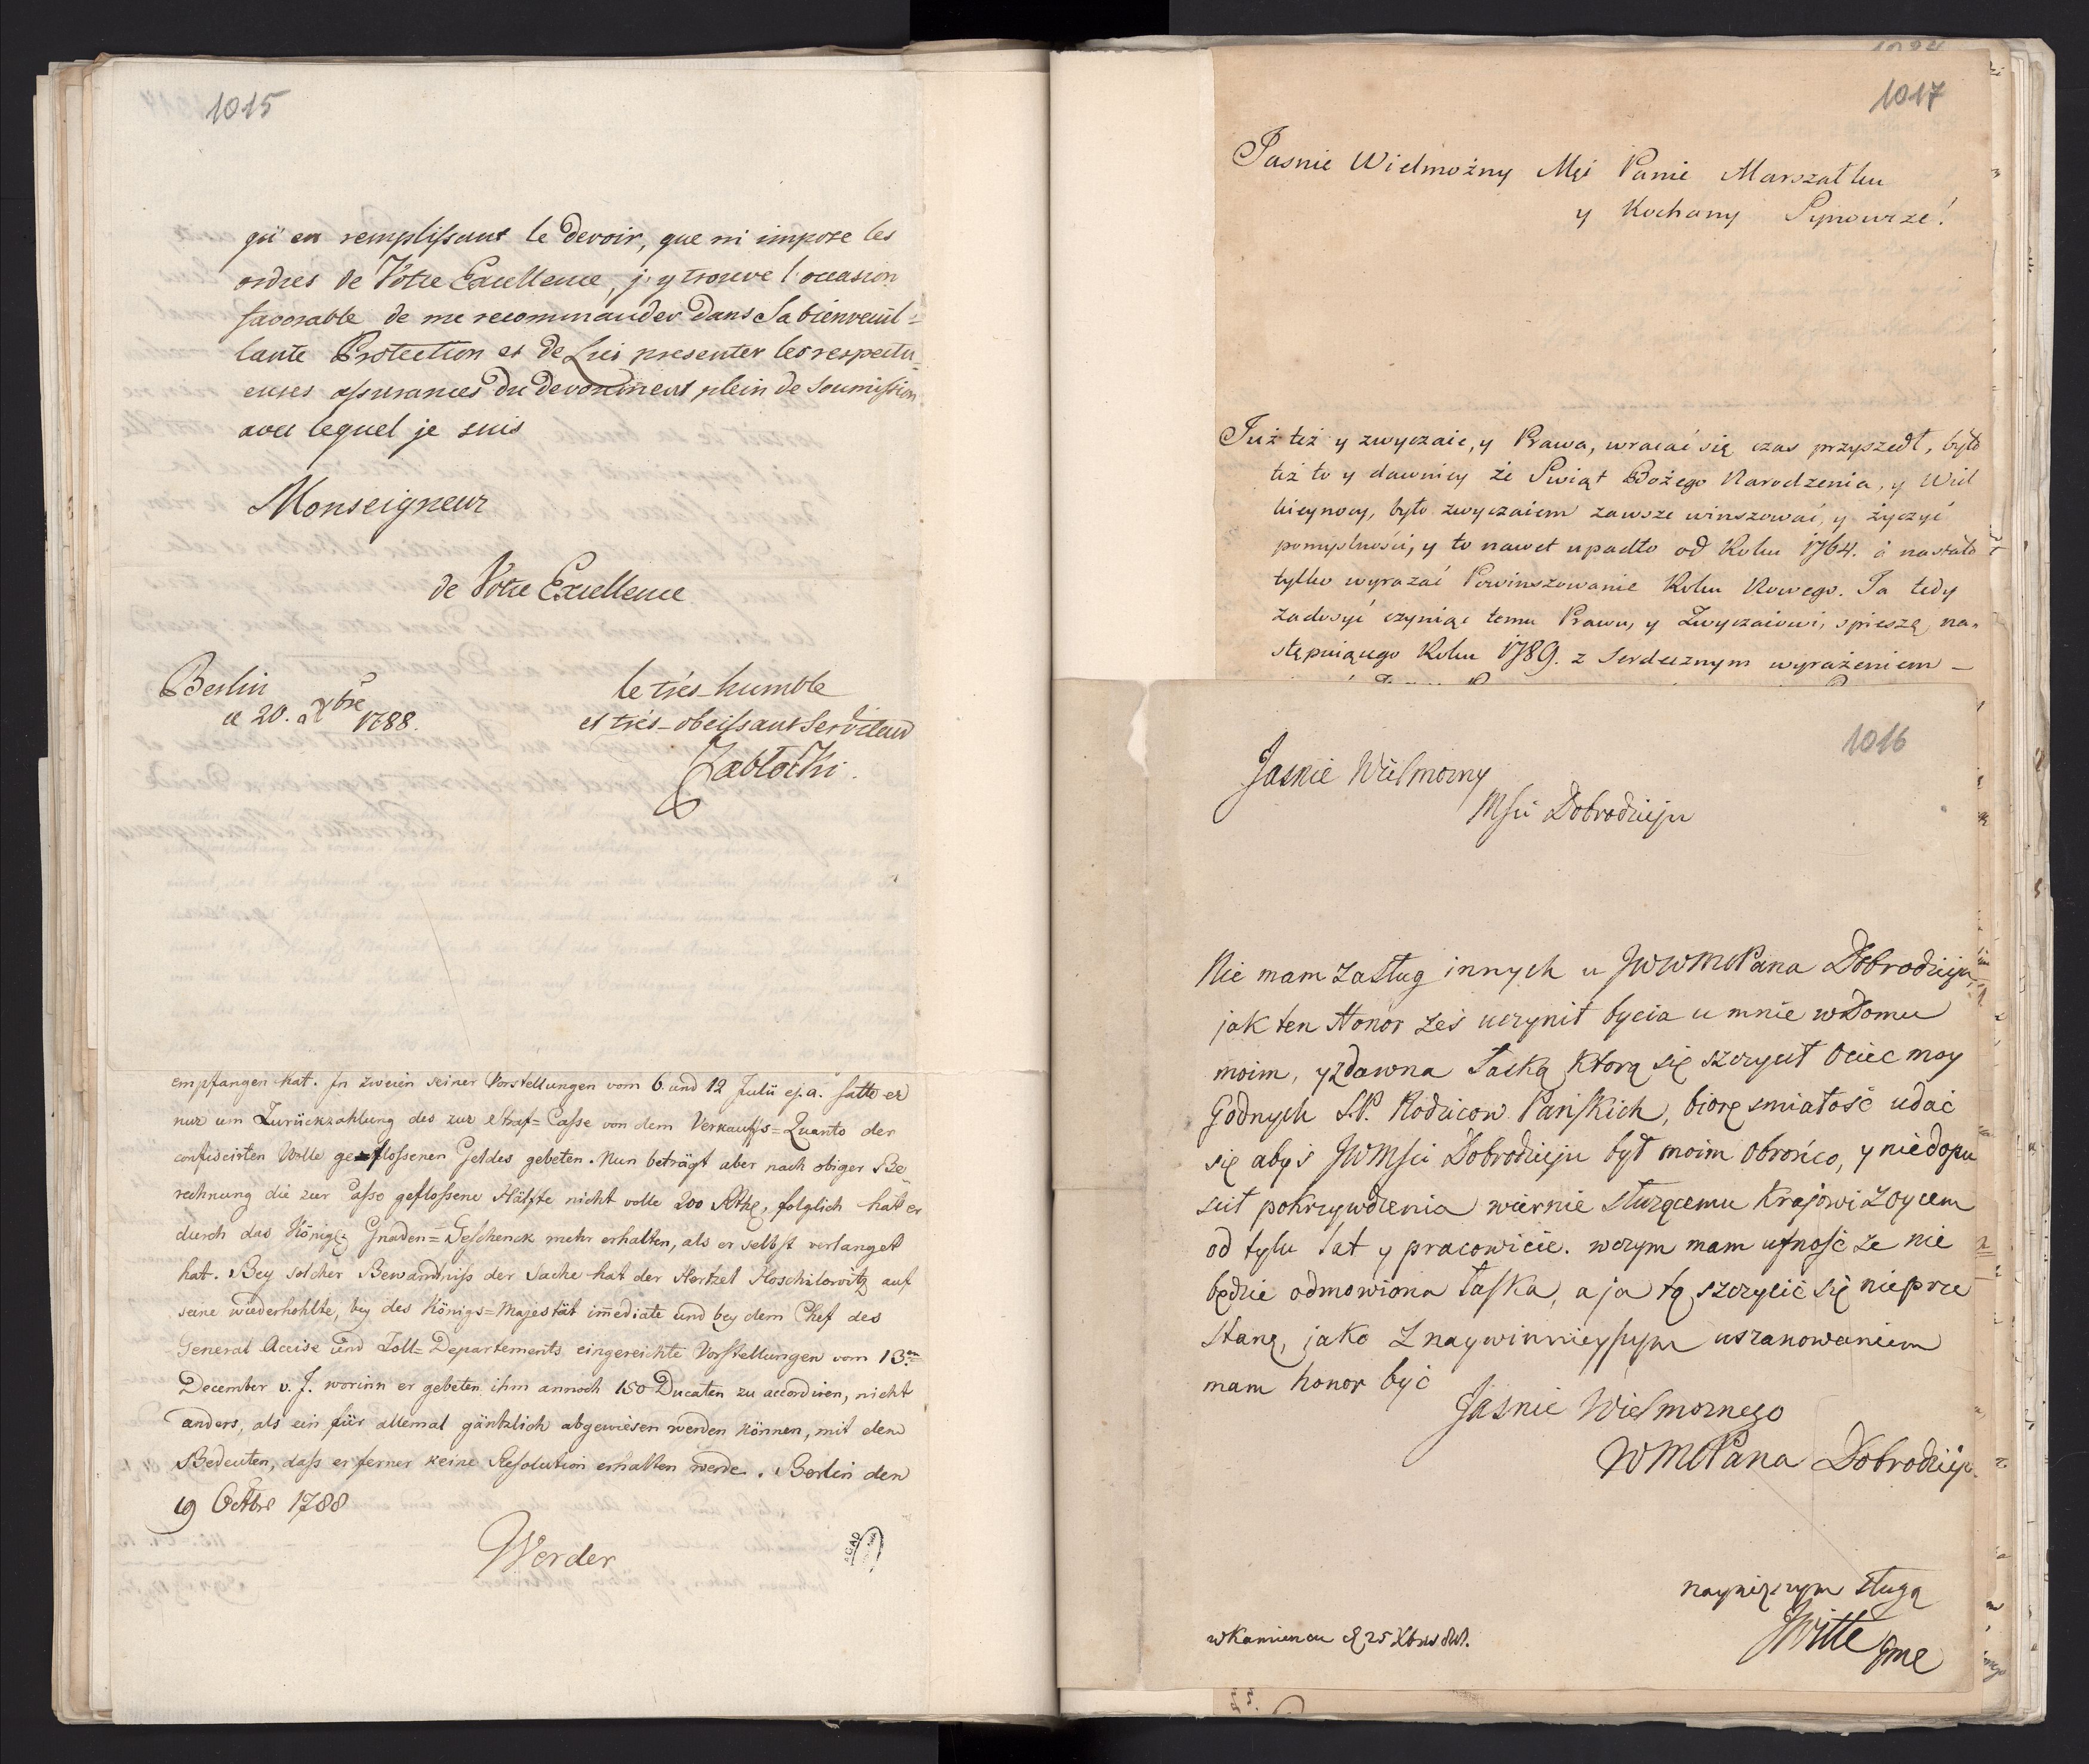 1015
qu'en remplissant le Devoir, que m'impose les
ordres de Votre Excellence, j'y trouve l'occasion
favorable de me recommander Dans Sa bienveuil=
lante Protection et de Lui presenter les respectu=
euses assurances du devouement plein de Soumission
avec lequel je suis
Monseigneur
de Votre Excellence
Berlin
ce 20. Xbre 1788.
le trés-humble
et trés-obeissant Serviteur
Zabłocki.
empfangen hat. In zweien seiner Vorstellungen vom 6 und 12 Julii ej. a. hatte er
nur um Zurückzahlung des zur Straf=Casse von dem Verkaufs=Quanto der
confiscirten Wolle geflossenen Geldes gebeten. Nun beträgt aber nach obiger Be
rechnung die zur Casse geflossene Hälfte nicht volle 200 Rthl., folglich hat er
durch das Königl. Gnaden=Geschenck mehr erhalten, als er selbst verlanget
hat. Bey solcher Bewandniss der Sache hat der Hertzel Hoschilowitz auf
seine wiederhohlte, bey des Königs=Majestät imediate und bey dem Chef des
General Accise und Zoll=Departements eingereichte Vorstellungen vom 13.ten
December v. J. worinn er gebeten ihm annoch 150 Ducaten zu accordiren, nicht
anders, als ein für allemal gäntzlich abgewiesen werden können, mit dem
Bedeuten, dass er ferner keine Resolution erhalten werde. Berlin den
19 Octbre 1788
Werder
AGAD
1017
Jasnie Wielmożny Mci Panie Marszałku
y Kochany Synowcze!
Już też y zwyczaie, y Prawa, wracać się czas przyszedł, było
też to y dawniey że Swiąt Bożego Narodzenia, y Wiel
kieynocy, było zwyczaiem zawsze winszować, y życzyć
pomyslności, y to nawet upadło od Roku 1764. á nastało
tylko wyrażać Powinszowanie Roku Nowego. Ja tedy
zadosyć czyniąc temu Prawu, y Zwyczaiowi, spieszę, na=
stępuiącego Roku 1789. z Serdecznym wyrażeniem
1016
Jasnie Wielmozny
Mści Dobrodzieju
Nie mam zasług innych u JWWMCPana Dobrodzieja,
jak ten Honor zes uczynił bycia u mnie w Domu
moim, y zdawna łaską ktorą się szczycił Ociec moy
Godnych S.P. Rodzicow Pańskich, biorę smiałość udać
się abyś JWMści Dobrodzieju był moim Obrońco, y niedopu
scił pokrzywdzenia wiernie służącemu Krajowi z Oycem
od tylu lat y pracowicie. w czym mam ufność ze nie
będzie odmowiona łaska, a ja tą szczycić się nieprze
stanę, jako z naywinnieyszym uszanowaniem
mam honor być
Jasnie Wielmoznego
WMCPana Dobrodzieja
nayniższym sługą
JWitte
w Kamiencu d 25 Xbris